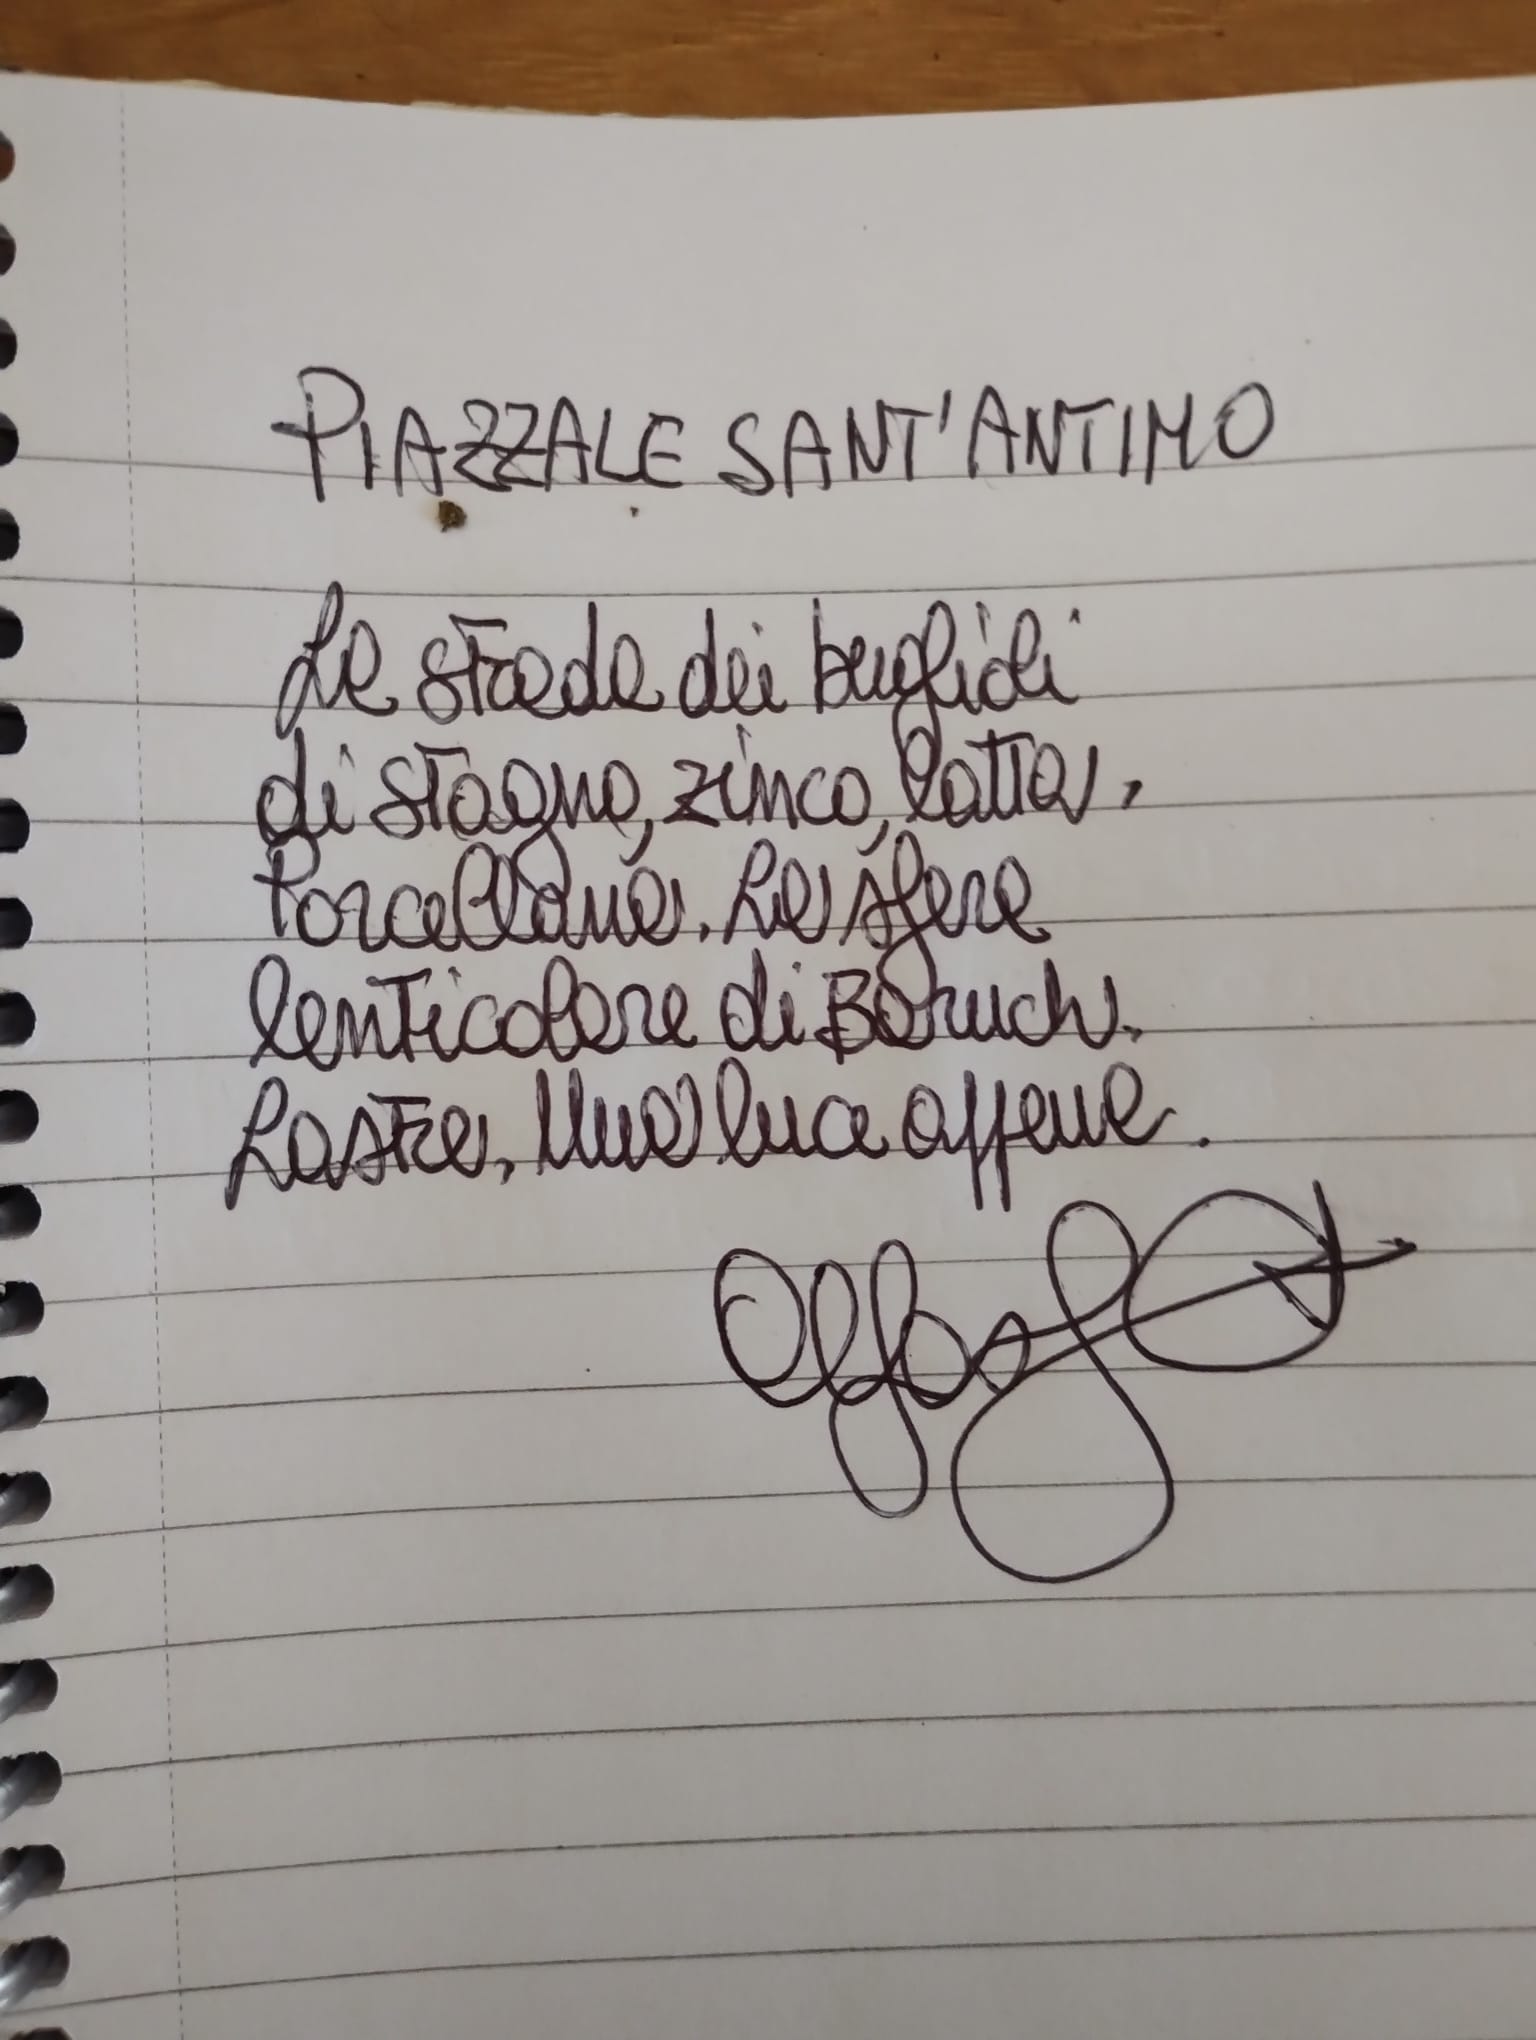 PIAZZALE SANT'ANTIMO
La strada dei buglioli
di stagno, zinco, latta,
Porcellana. Le sfere
lenticolare di Boruch.
Lastra, Una luce appena.